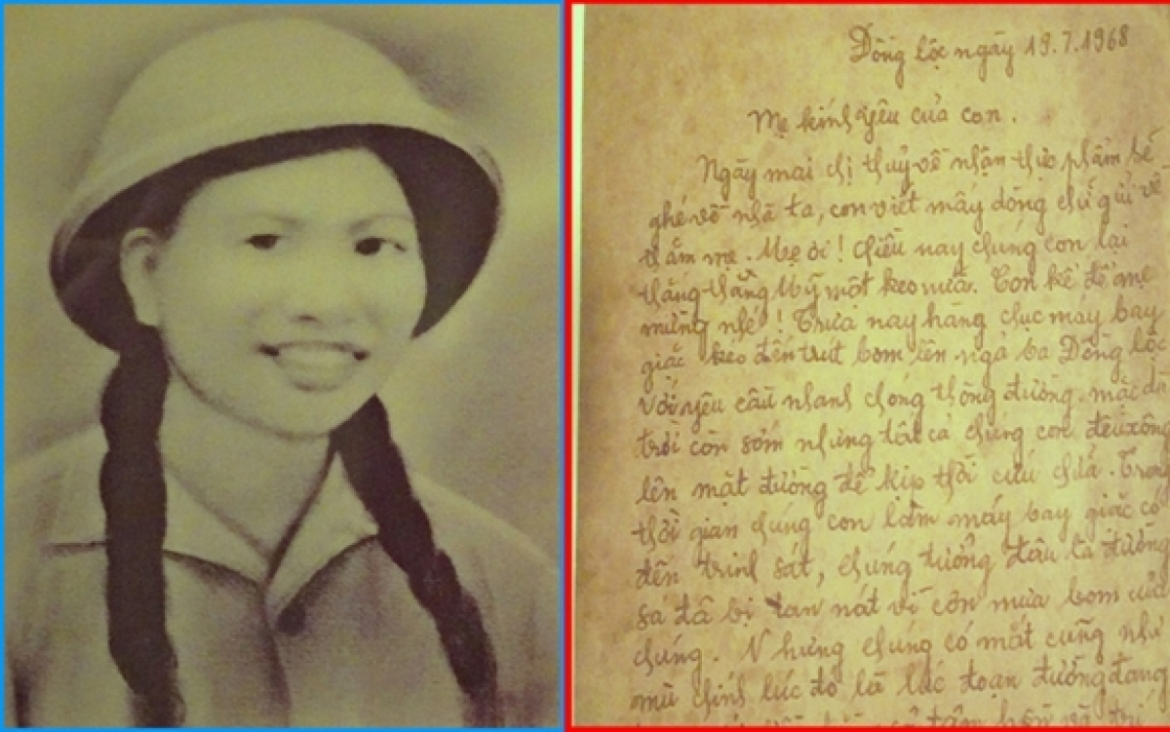 Đồng lộc ngày 19.7.1968
Mẹ kính yêu của con.
Ngày mai chị thuỷ về nhận thực phẩm sẽ
ghé về nhà ta, con viết mấy dòng chữ gửi về
thăm mẹ. Mẹ ơi! Chiều nay chúng con lại
thắng thằng Mỹ một keo nữa. Con kể để mẹ
mừng nhé! Trưa nay hàng chục máy bay
giặc kéo đến trút bom lên ngã ba Đồng lộc
Với yêu cầu nhanh chóng thông đường, mặc dù
trời còn sớm nhưng tất cả chúng con đều xông
lên mặt đường để kịp thời cứu chữa. Trong
thời gian chúng con làm máy bay giặc có
đến trinh sát, chúng tưởng đâu là đường
sá đã bị tan nát vì cơn mưa bom của
chúng. Nhưng chúng có mắt cũng như
mù chính lúc đó là lúc đoạn đường đang
tâm hồn và trí